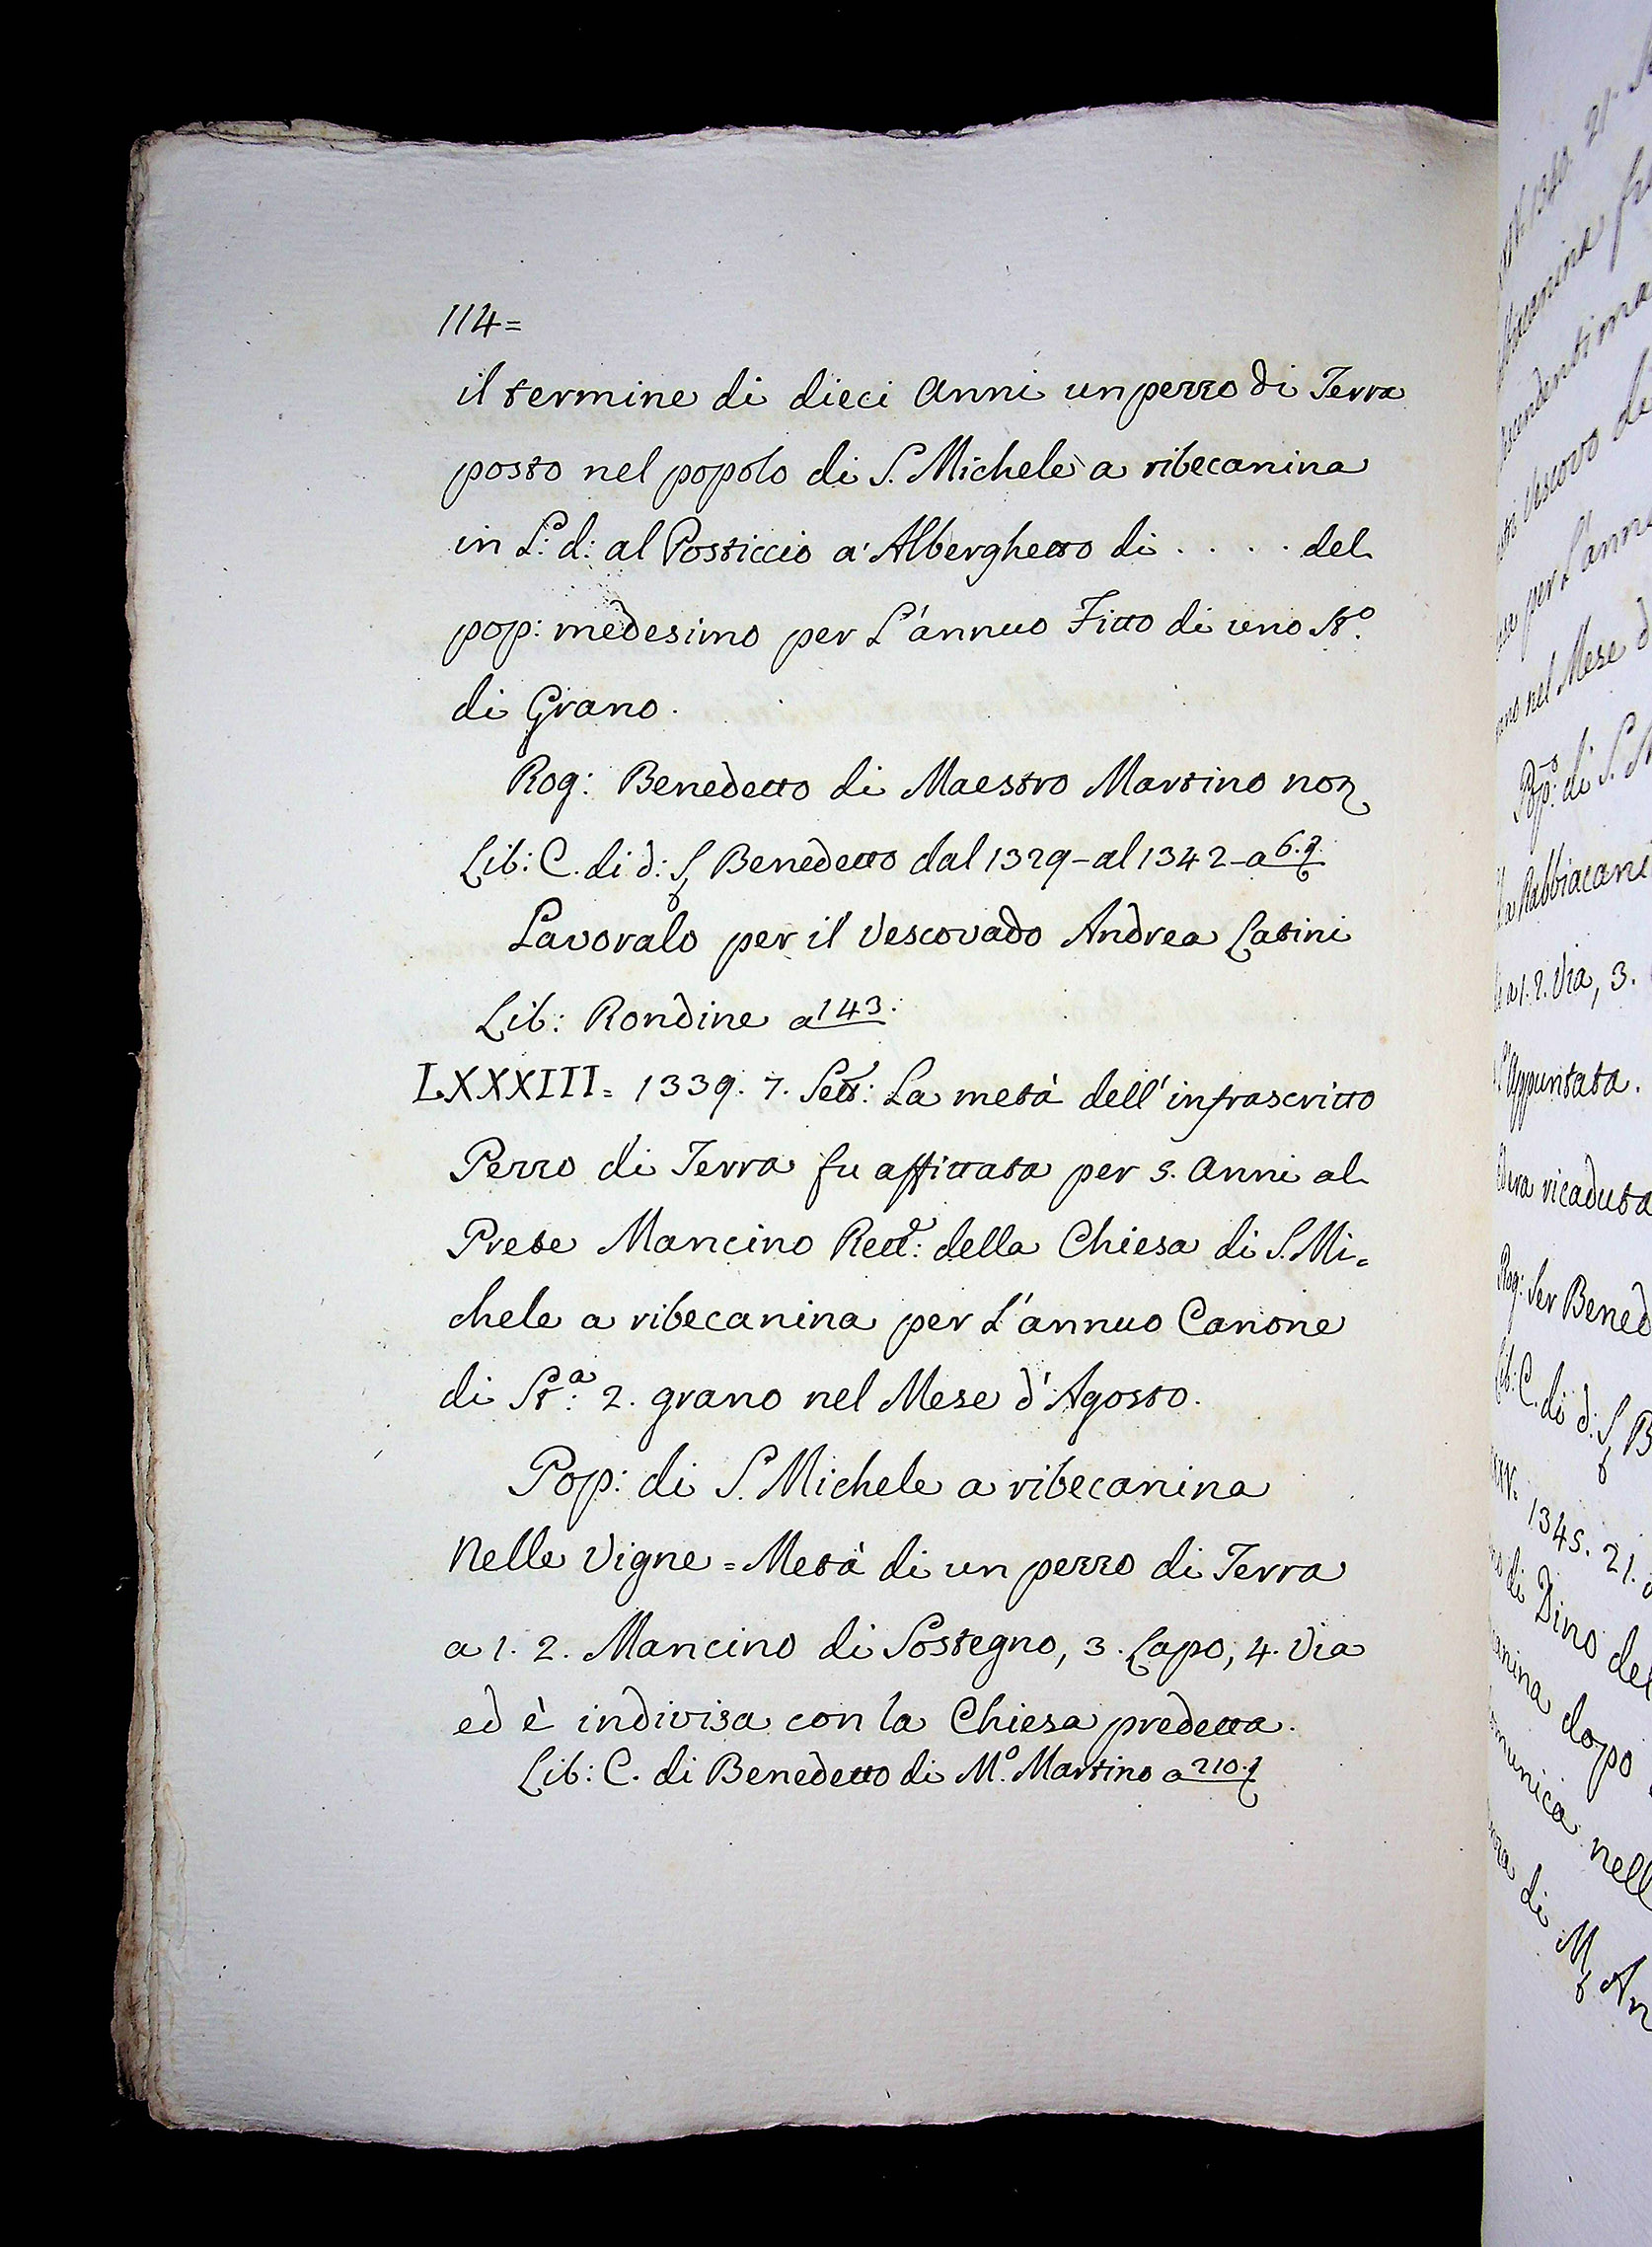 114=
il termine di dieci Anni un pezzo di Terra
posto nel popolo di S. Michele a ribecanina
in L: d: al Posticcio a Alberghetto di . . . . del
pop: medesimo per L'annuo Fitto di uno St.º
di Grano.
Rog: Benedetto di Maestro Martino not
Lib: C. di d: S Benedetto dal 1329 - al 1342 - a 6.
Lavoralo per il Vescovado Andrea Catini
Lib: Rondine a 143.
LXXXIII= 1339. 7. Sett: La metà dell'infrascritto
Pezzo di Terra fu affittata per 5. Anni al
Prete Mancino Rett.e: della Chiesa di S. Mi=
chele a ribecanina per L'annuo Canone
di St.a: 2. grano nel Mese d'Agosto.
Pop: di S. Michele a ribecanina
Nelle Vigne = Metà di un pezzo di Terra
a 1. 2. Mancino di Sostegno, 3. Lapo, 4. Via
ed è indivisa con la Chiesa predetta.
Lib: C. di Benedetto di M.º Martino a 210.
1340. 21.
Vescovo di
per L'anno
nel Mese d
Pop.º di S. M
a 1. 2. Via, 3.
Appuntata.
era ricaduta
Rog: Ser Bened
Lib: C. di d: S B
1345. 21.
di Dino del
dopo
nell
di M An